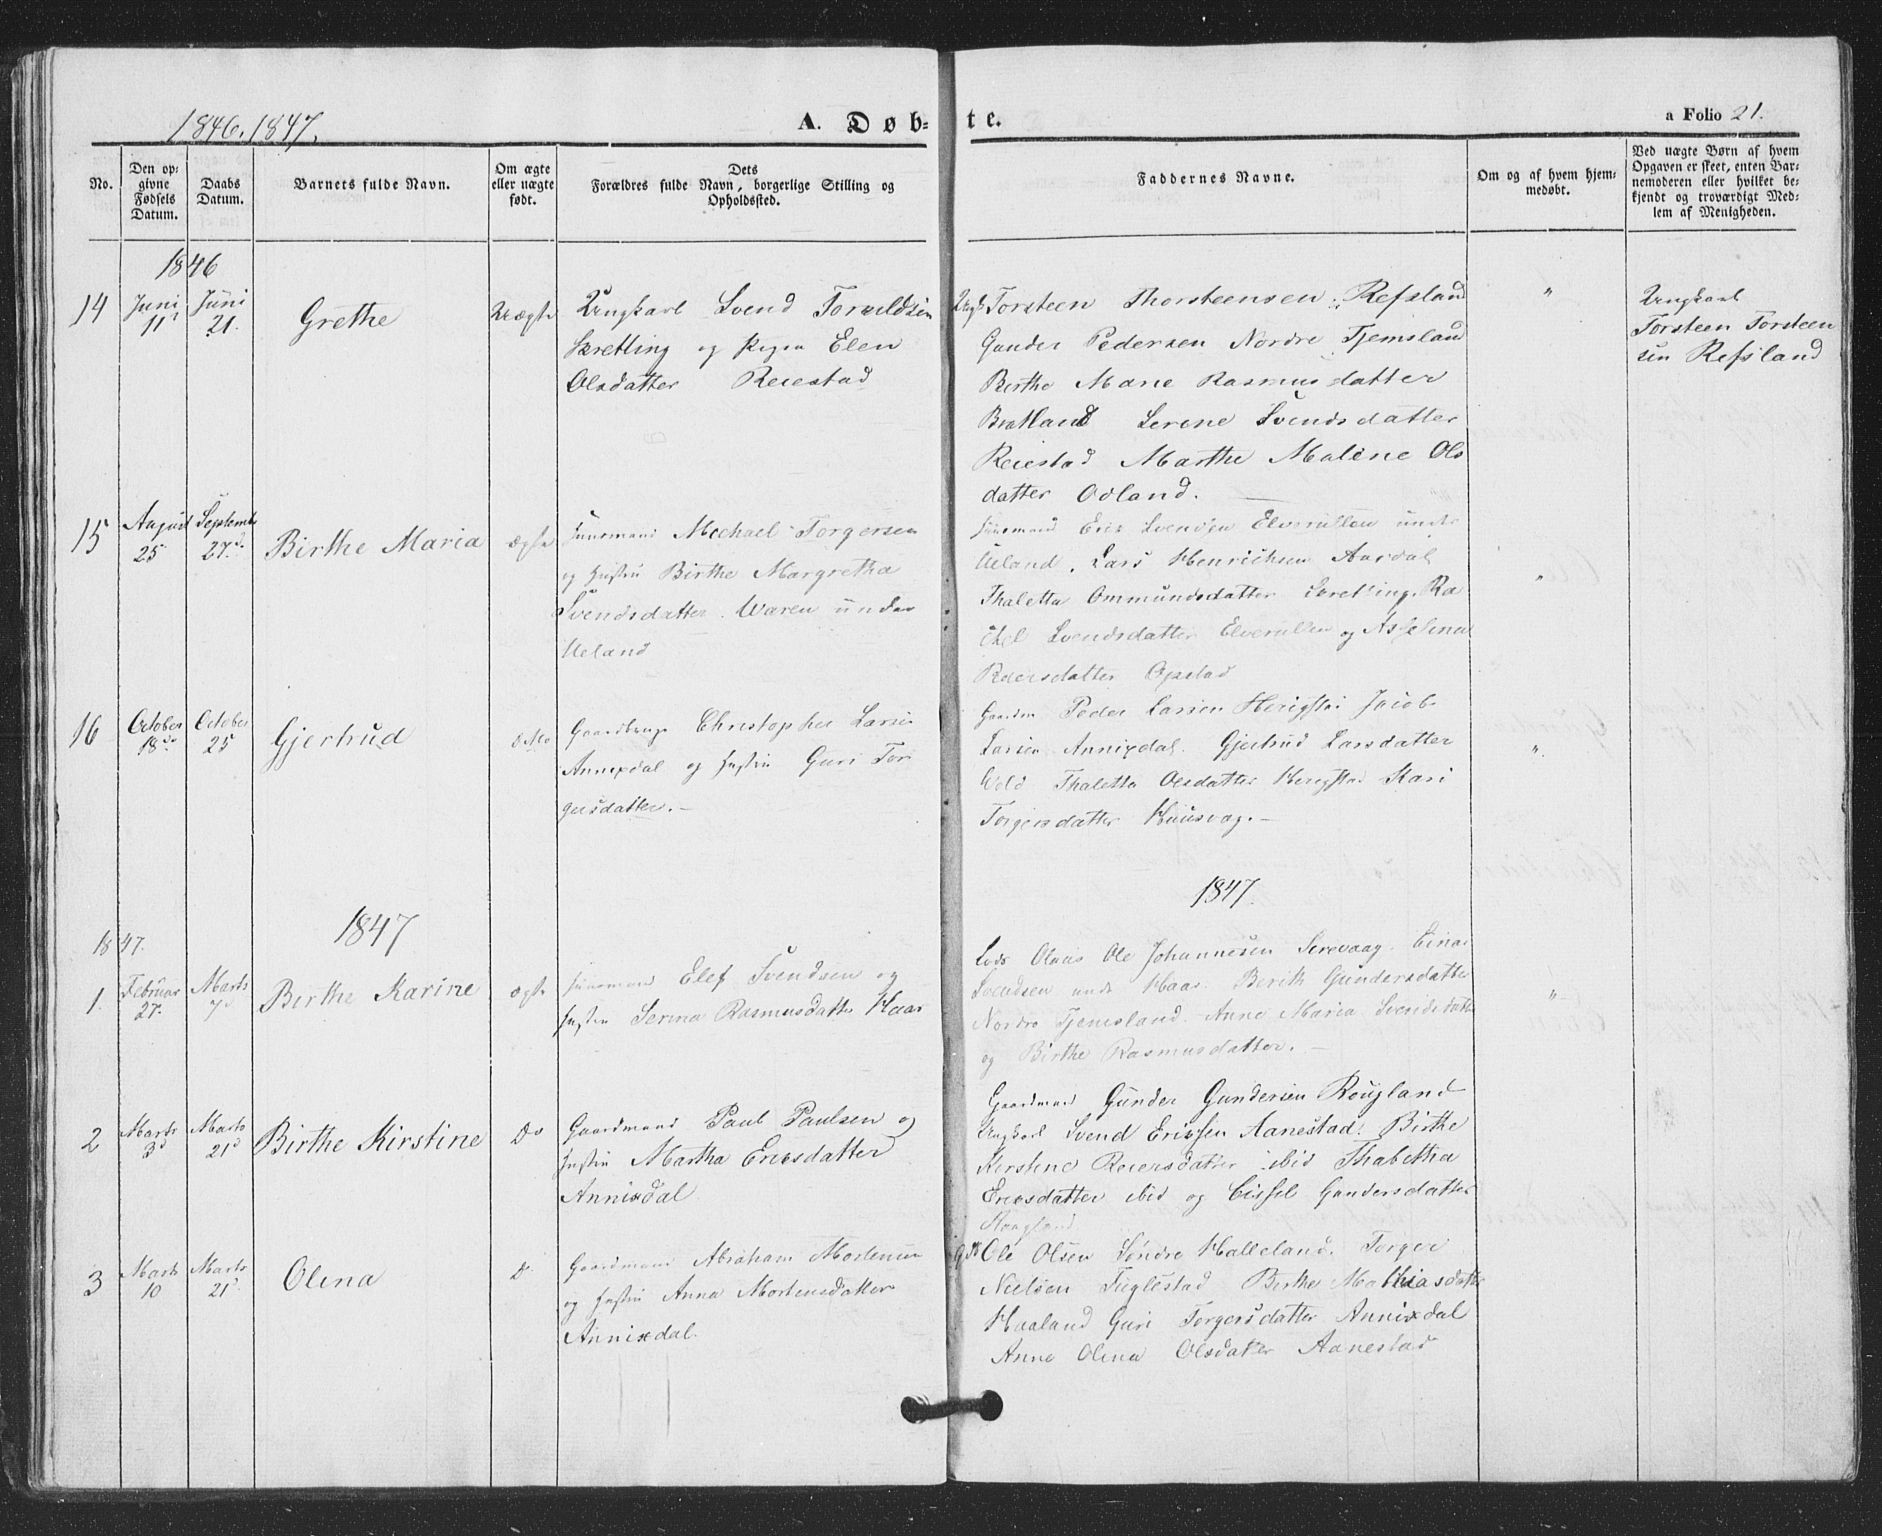 1846. 1847.
A. Døb-
te.
a Folio 21.
No.
Den op-
givne
Fødsels
Datum.
Daabs
Datum.
Barnets fulde Navn.
Om ægte
eller uægte
født.
Dets
Forældres fulde Navn, borgerlige Stilling og
Opholdssted.
Faddernes Navne.
Om og af hvem hjem-
medøbt.
Ved uægte Børn af hvem
Opgaven er skeet, enten Bar-
nemoderen eller hvilket be-
kjendt og troværdigt Med-
lem af Menigheden.
1846
14
Juni
11
Juni
21.
Grethe
Uægte
Ungkarl Svend Torvildsen
Skretting og Pigen Elen
Olsdatter Reiestad
Ungk Torsteen Thorsteensen Refsland
Gunder Pedersen Nordre Tjemsland
Birthe Marie Rasmusdatter
Bratland Serene Svendsdatter
Reiestad Marthe Maline Ols
datter Odland.
"
Ungkarl
Torsteen Torsteen
sen Refsland
15
August
25
Septembr
27d.
Birthe Maria
ægte
Huusmand Mechael Torgersen
og Hustru Birthe Margretha
Svendsdatter Waren under
Ueland
Huusmand Eric Svendsen Elverullen under
Ueland. Lars Henrichsen Aardal
Thaletta Ommundsdatter Scretting. Ra
chel Svendsdatter Elverullen og Asselina
Reiersdatter Opstad
"
16
October
18de
October
25
Gjertrud
Ditto
Gaardbrug Christopher Larsen
Annixdal og Hustru Guri Tor
gersdatter.
Gaardm Peder Larsen Herigstad Jacob
Larsen Annixdal. Gjertrud Larsdatter
Wold Thaletta Olsdatter Herigstad Kari
Torgersdatter Huusvag.
"
1847
1847.
1847.
1.
Februar
27.
Marts
7d
Birthe Karine
ægte
Huusmand Elef Svendsen og
Hustru Serina Rasmusdatter Haar
Lods Olaus Ole Johannesen Sirevaag. Einar
Svendsen unde Haar. Berith Gundersdatter
Nordre Tjemsland. Anne Maria Svendsdatter
og Birthe Rasmusdatter.
"
2
Marts
3d
Marts
21d
Birthe Kirstine
Do
Gaardmand Paul Paulsen og
Hustru Martha Ericsdatter
Annixdal
Gaardmand Gunder Gundersen Rougland
Ungkarl Svend Ericksen Aanestad. Birthe
Kirstine Reiersdatter ibid Thabetha
Ericsdatter ibid og Cissel Gundersdatter
Rougland
3
Marts
10
Marts
21d
Olena
Do
Gaardmand Abraham Mortensen
og Hustru Anna Mortensdatter
Annixdal.
Ole Olsen Søndre Halleland. Torger
Nielsen Fuglestad Birthe Mathiasdatter
Haaland Guri Torgersdatter Annixdal
Anne Olena Olsdatter Aanestad